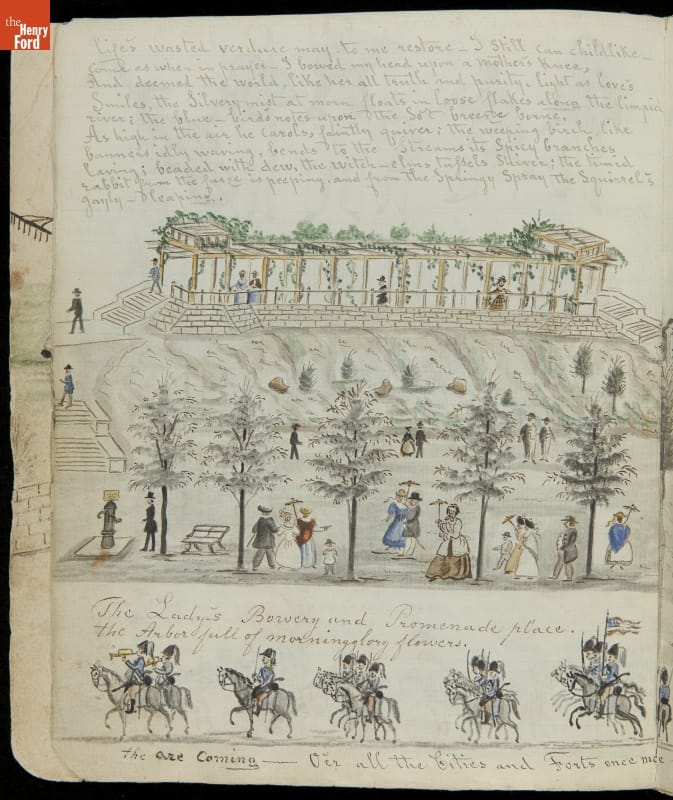 the
Henry
Ford
life's wasted verdure may, to me restore — I still can childlike
come as when in prayer — I bowed my head upon a mother's Knee,
And deemed the world, like her all truth and purity, light as love's
Smiles, the Silvery mist at morn floats in loose flakes along the limpid
river; the blue-birds notes upon the Soft breese borne.
As high in the air he Carols, faintly quiver; the weeping birch, like
banners idly waving, bends to the Streams its Spicy branches
laving; beaded with dew, the witch-elms tassels Shiver; the timid
rabbit from the furze is peeping, and from the Springy Spray the Squirrel's
gayly—leaping.
The Lady's Bowery and Promenade place.
the Arbor full of morningglory flowers.
the are Coming — O'er all the Cities and Forts once more